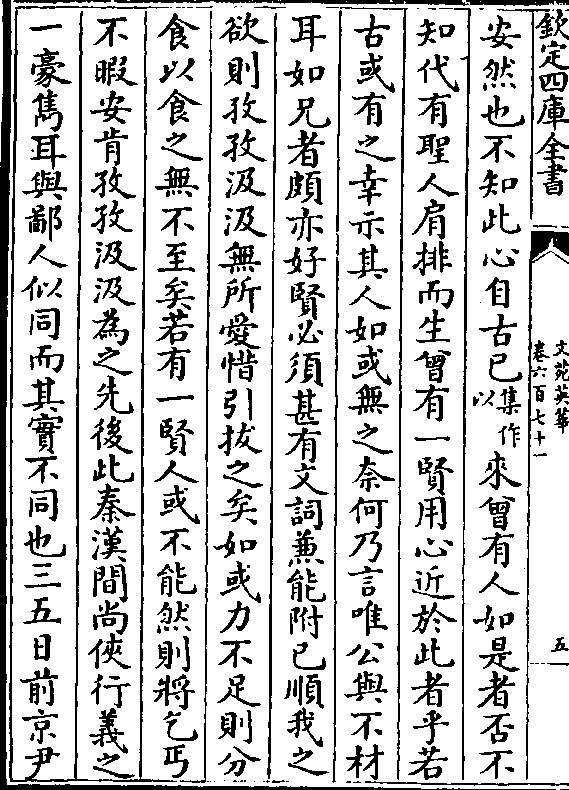 欽定四庫全書
文苑英華
卷六百七十一
五
安然也不知此心自古已集作以來曾有人如是者否不
知代有聖人肩排而生曾有一賢用心近於此者乎若
古或有之幸示其人如或無之奈何乃言唯公與不材
耳如兄者頗亦好賢必須甚有文詞兼能附已順我之
欲則孜孜汲汲無所愛惜引拔之矣如或力不足則分
食以食之無不至矣若有一賢人或不能然則將乞丐
不暇安肯孜孜汲汲為之先後此秦漢間尚俠行義之
一豪雋耳與鄙人似同而其實不同也三五日前京尹